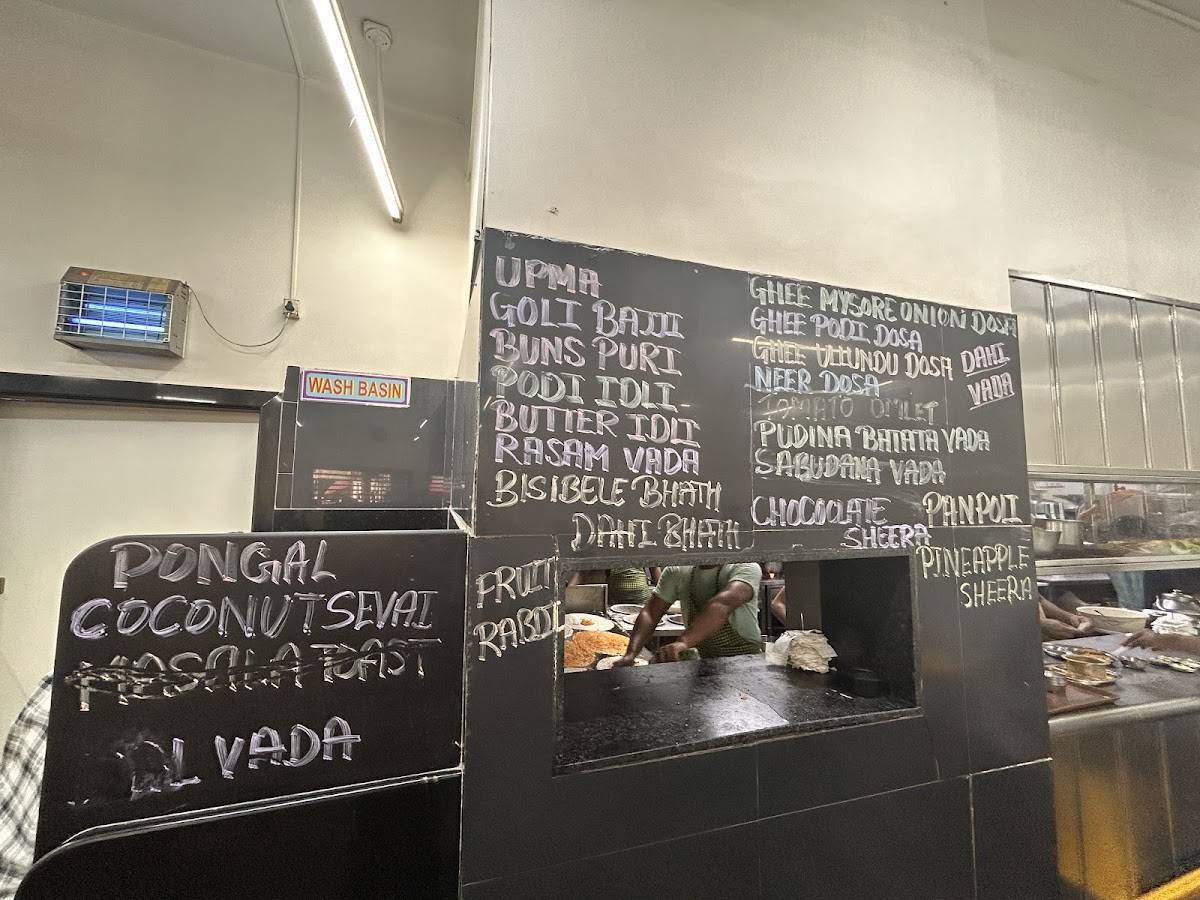 WASH BASIN
PONGAL
COCONUT SEVAI
MASALA TOAST
VADA
UPMA
GOLI BAJJI
BUNS PURI
PODI IDLI
BUTTER IDLI
RASAM VADA
BISIBELE BHATH
DAHI BHATH
FRUIT
RABDI
GHEE MYSORE ONION DOSA
GHEE PODI DOSA
GHEE ULUNDU DOSA
NEER DOSA
TOMATO OMLET
PUDINA BATATA VADA
SABUDANA VADA
DAHI
VADA
CHOCOCLATE
SHEERA
PANPOLI
PINEAPPLE
SHEERA